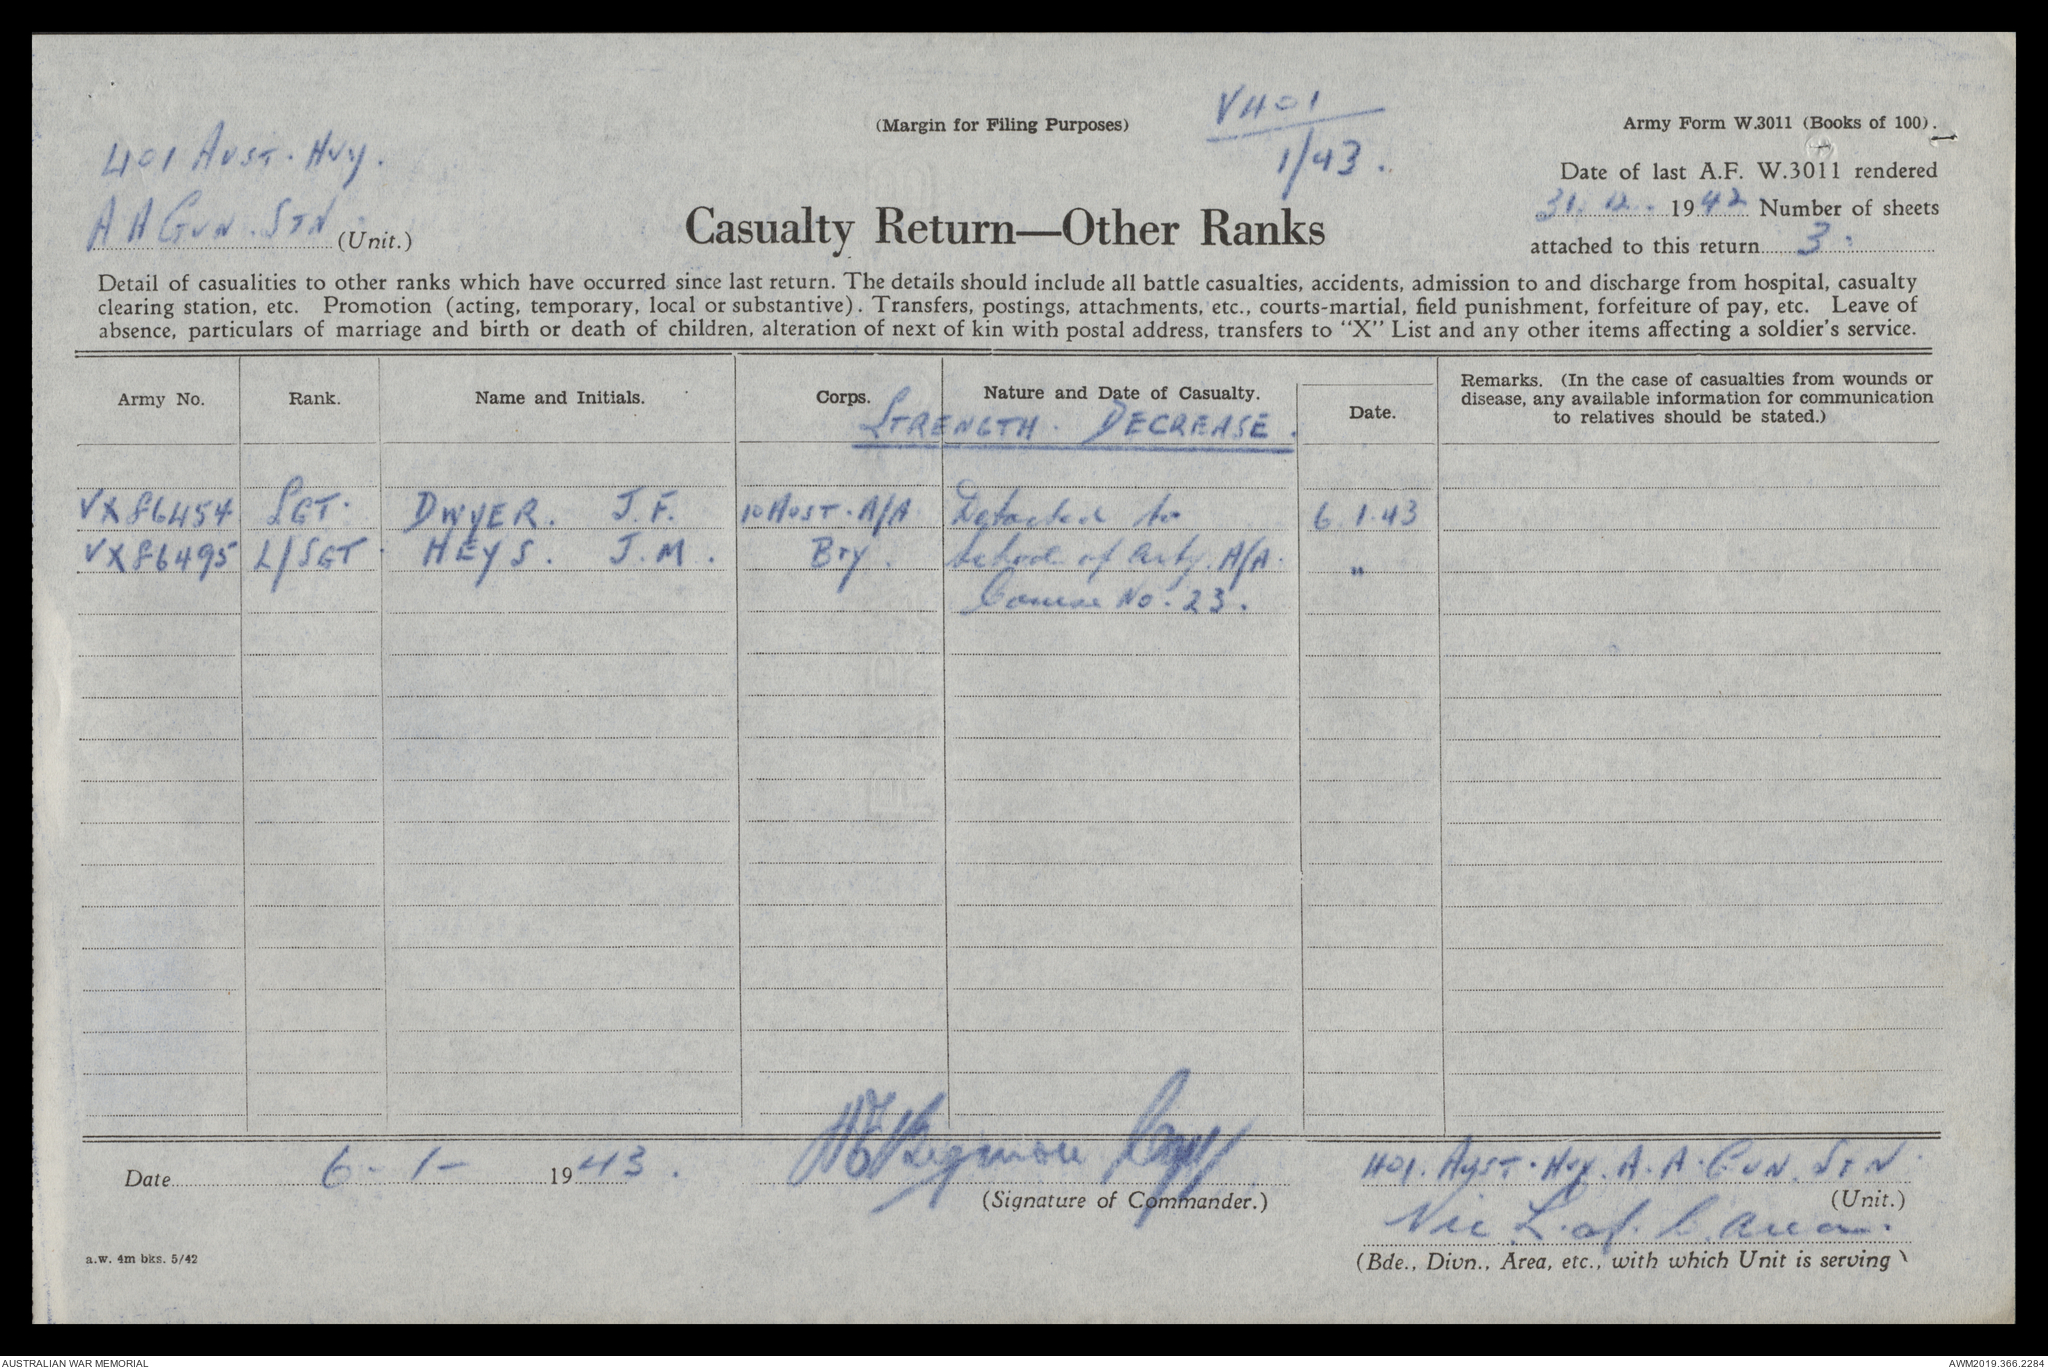 (Margin for Filing Purposes)
V401
1/43.
Army Form W.3011 (Books of 100).
401 AUST. HVY.
A A GUN. STN (Unit.)
Date of last A.F. W.3011 rendered
31.12. 1942 Number of sheets
attached to this return 3.
Casualty Return—Other Ranks
Detail of casualities to other ranks which have occurred since last return. The details should include all battle casualties, accidents, admission to and discharge from hospital, casualty
clearing station, etc. Promotion (acting, temporary, local or substantive). Transfers, postings, attachments, etc., courts-martial, field punishment, forfeiture of pay, etc. Leave of
absence, particulars of marriage and birth or death of children, alteration of next of kin with postal address, transfers to "X" List and any other items affecting a soldier's service.
Army No. Rank. Name and Initials. Corps. Nature and Date of Casualty. Date. Remarks. (In the case of casualties from wounds or
disease, any available information for communication
to relatives should be stated.)
STRENGTH. DECREASE.
VX86454 SGT. DWYER. J.F. 10 AUST. A/A Detached to 6.1.43
VX86495 L/SGT. HEYS. J.M. Bty. School of Arty. A/A. "
Course No. 23.
Date 6-1- 1943.
(Signature of Commander.)
401. AUST. HVY. A.A. GUN. STN.
(Unit.)
Vic L. of C. Area.
(Bde., Divn., Area, etc., with which Unit is serving
a.w. 4m bks. 5/42
AUSTRALIAN WAR MEMORIAL
AWM2019.366.2284